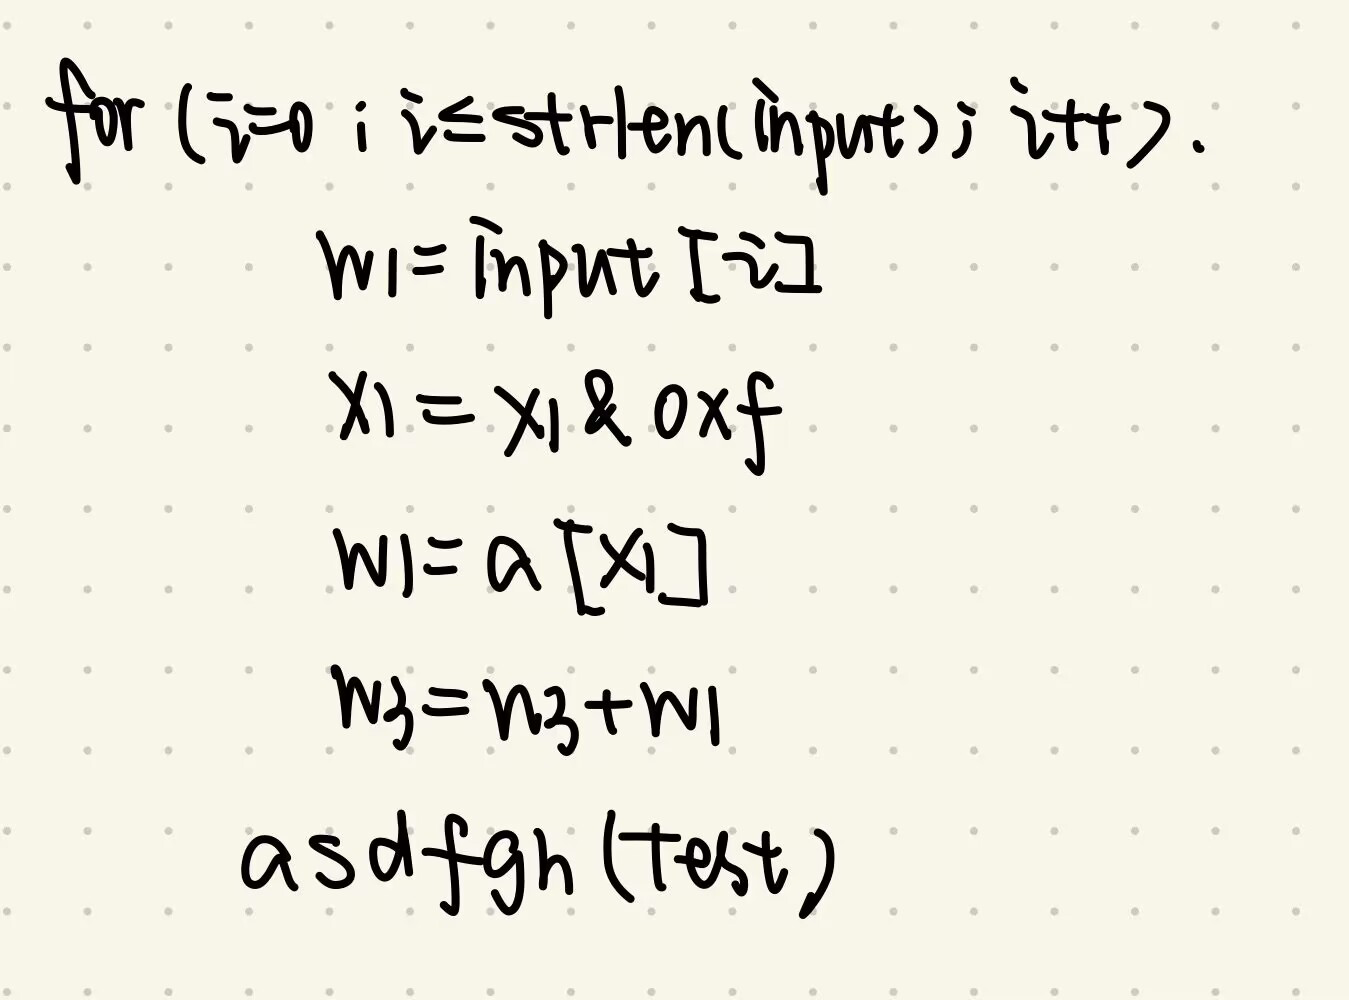 for (i=0 ; i≤strlen(input); i++).
w1=input [i]
x1 = x1 & 0xf
w1= a [x1]
w3=w3+w1
asdfgh (test)